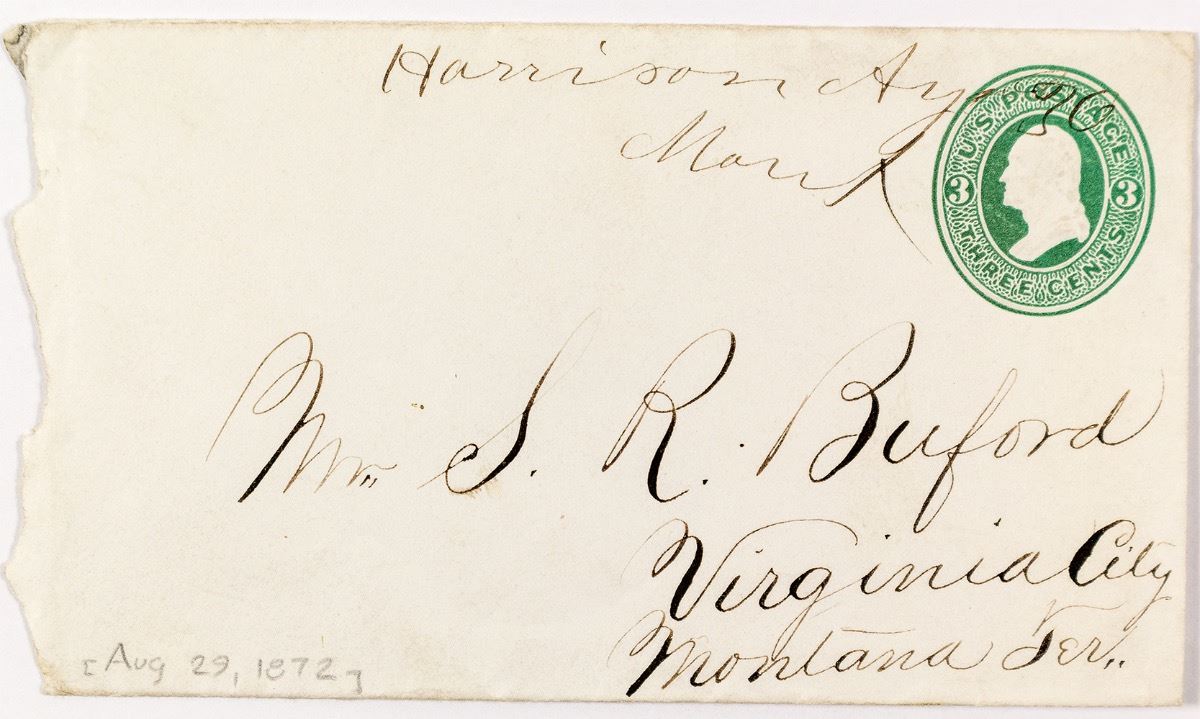 Harrison Aug 30
Mont
U.S. POSTAGE
3 3
THREE CENTS
Mr. S. R. Buford
Virginia City
Montana Ter.
[Aug 29, 1872]